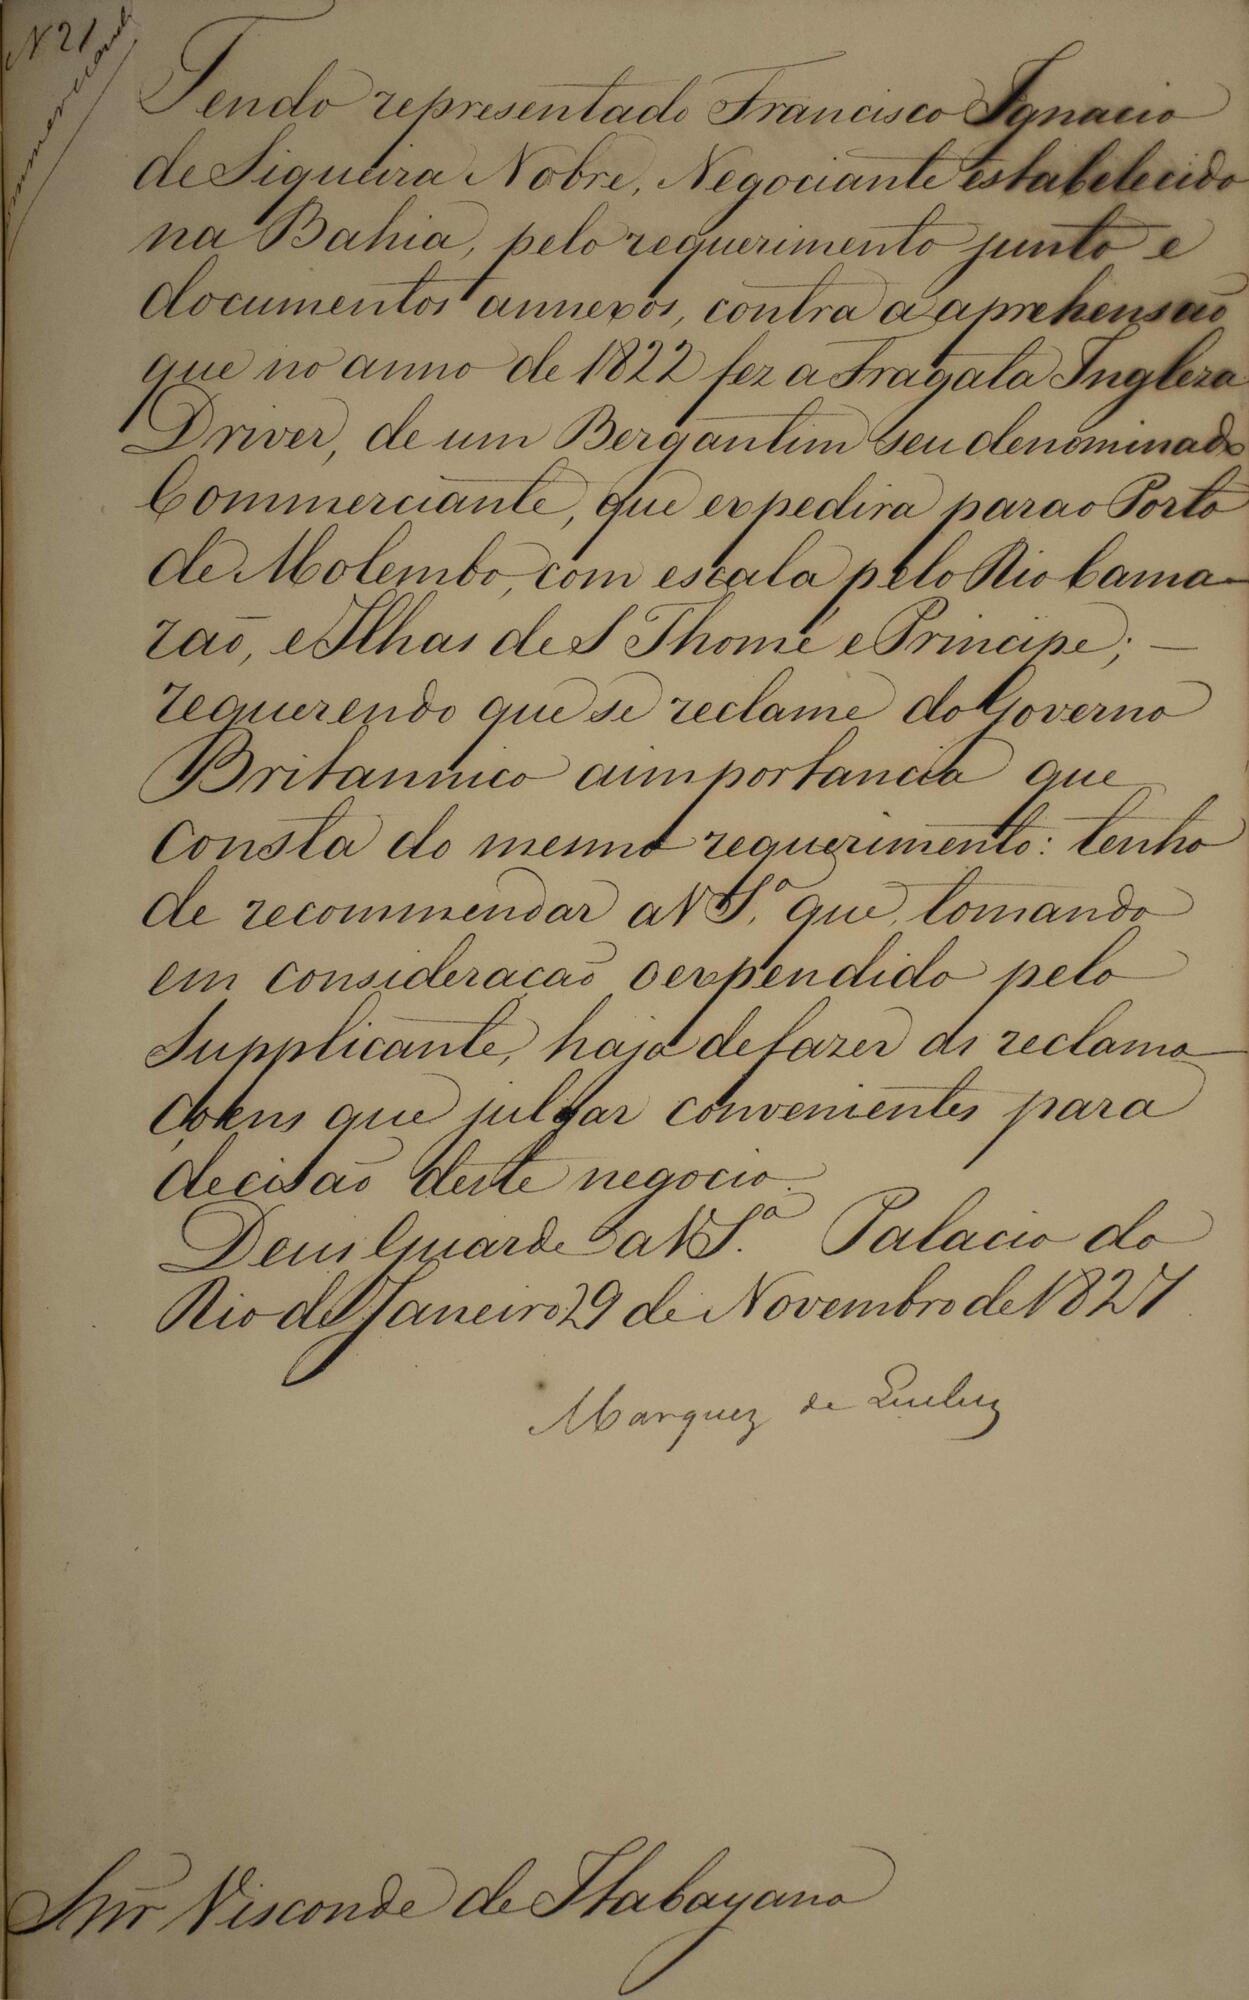 N 21
Tendo representado Francisco Ignacio
de Siqueira Nobre, Negociante estabelecido
na Bahia, pelo requerimento junto e
documentos annexos, contra a aprehensaõ
que no anno de 1822 fez a Fragata Ingleza
Driver, de um Bergantim seu denominado
Commerciante, que expedira para o Porto
de Molembo, com escala pelo Rio Cama-
raõ, e Ilhas de S Thomé e Principe; —
requerendo que se reclame do Governo
Britannico a importancia que
Consta do mesmo requerimento: tenho
de recommendar a V S.ª que, tomando
em consideraçaõ o expendido pelo
Supplicante, haja de fazer as reclama-
çoens que julgar convenientes para
decisaõ deste negocio.
Deus Guarde a V S.ª Palacio do
Rio de Janeiro 29 de Novembro de 1827
Marquez de Queluz
Snr Visconde de Itabayana